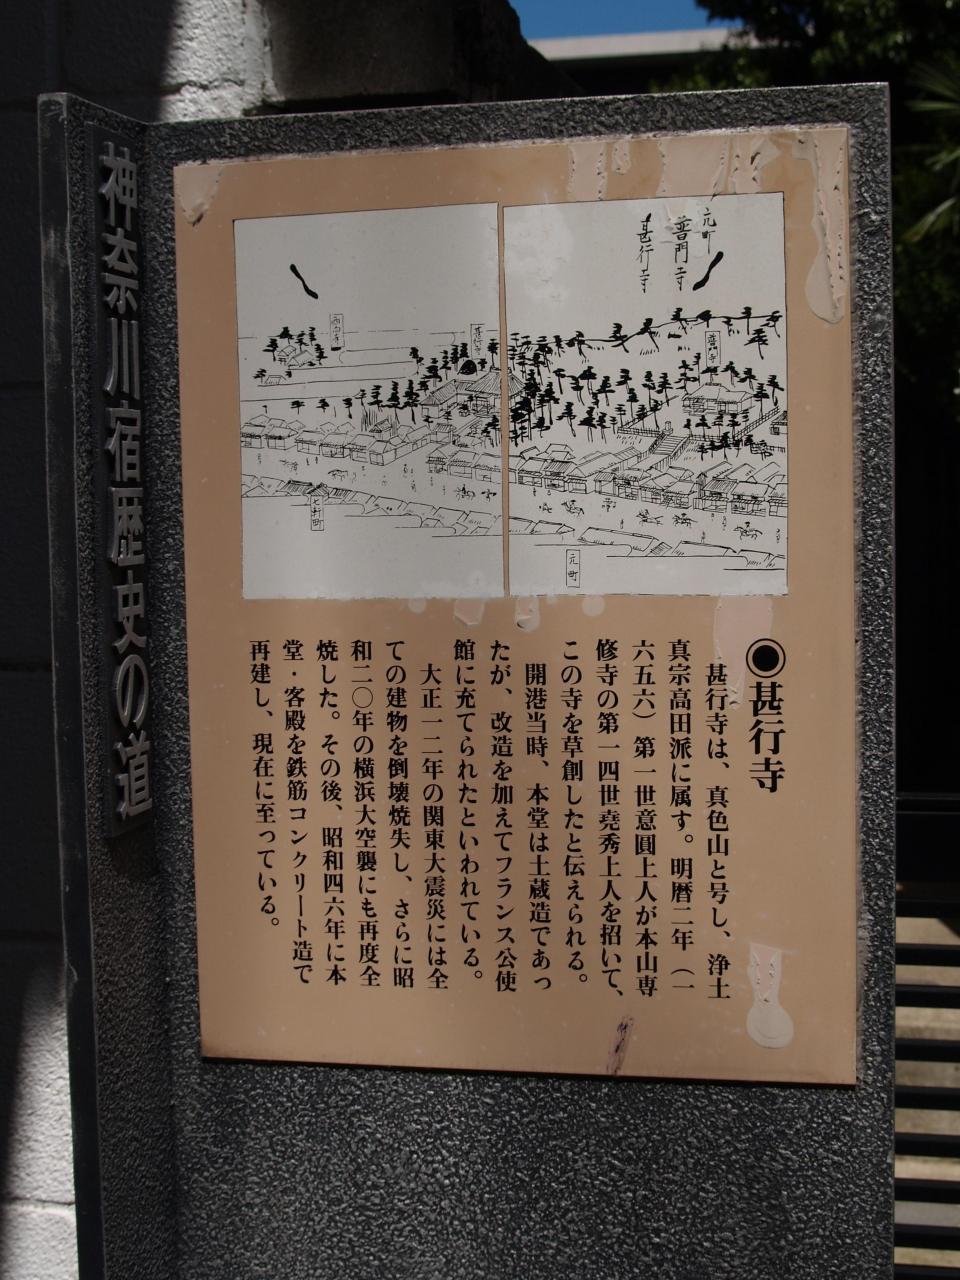 神奈川宿歴史の道
元町
普門寺
甚行寺
普門寺
甚行寺
七軒町
元町
◉甚行寺
甚行寺は、真色山と号し、浄土
真宗高田派に属す。明暦二年（一
六五六）第一世意圓上人が本山専
修寺の第一四世堯秀上人を招いて、
この寺を草創したと伝えられる。
開港当時、本堂は土蔵造であっ
たが、改造を加えてフランス公使
館に充てられたといわれている。
大正一二年の関東大震災には全
ての建物を倒壊焼失し、さらに昭
和二〇年の横浜大空襲にも再度全
焼した。その後、昭和四六年に本
堂・客殿を鉄筋コンクリート造で
再建し、現在に至っている。